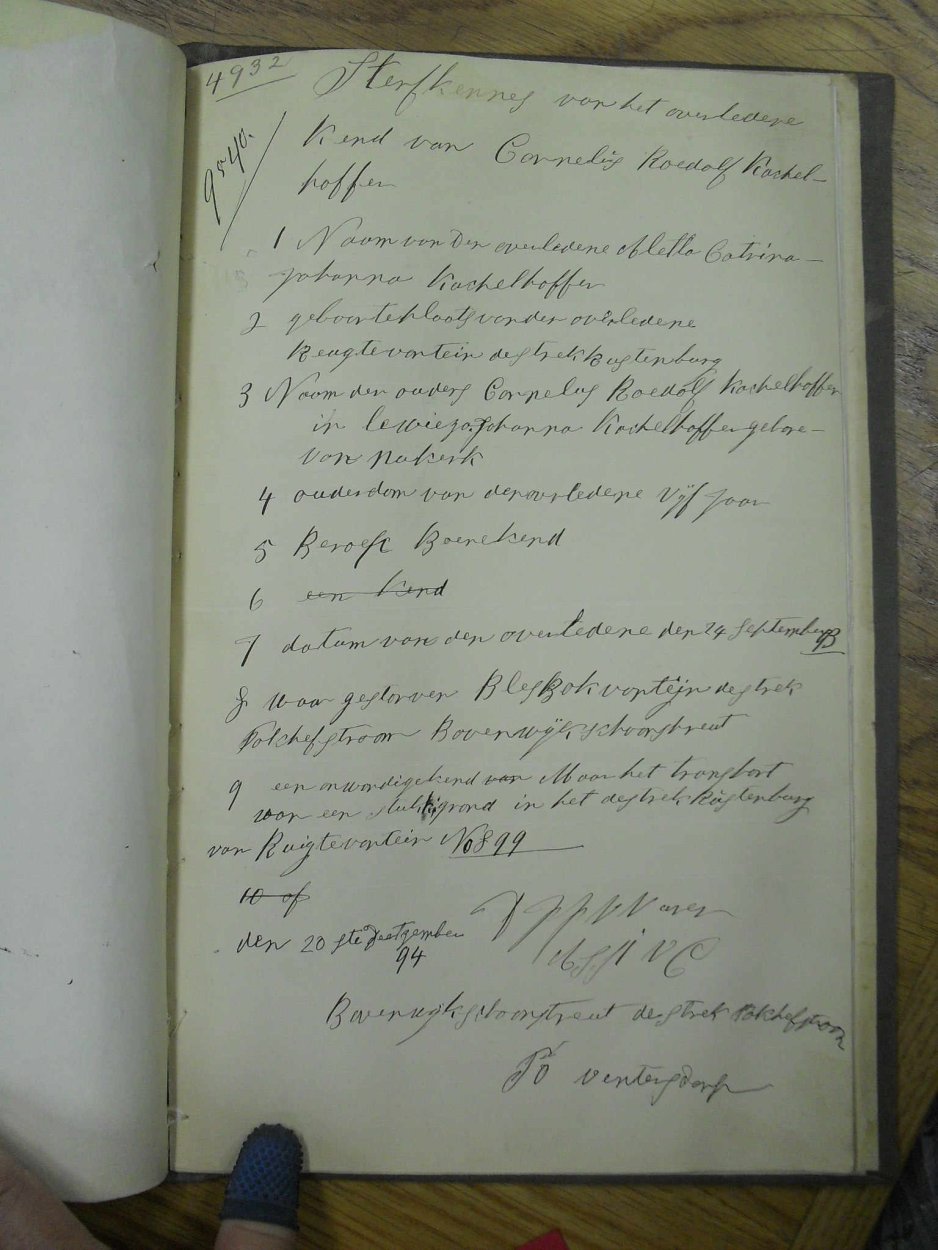 4932
9540.
Sterfkennes van het overledene
Kend van Cornelis Roedolf Kachel-
hoffer
1 Naam van den overledene Catrina-
johanna Kachelhoffer
2 geboorteplaats van der overledene
destrek Rustenburg
3 Naam der ouders Cornelus Roedolf Kachelhoffer
in johanna Kachelhoffer gebore-
van nukerk
4 ouderdom van den overledene vijf jaar
5 Beroep Boerekend
6 een kend
7 datum van den overledene den 24 September 93
8 waar gestorven BlesBok vontijn destrek
Potchefstroom Bovenwijk schoonstreut
9 een onwordigekend van Maar het transport
van een stukkigrond in het destrek Rustenburg
van Ruigtevontein No 899
10 of
den 20 ste
94
Bovenwijk schoonstreut destrek Potchefstroom
Po ventersdorp